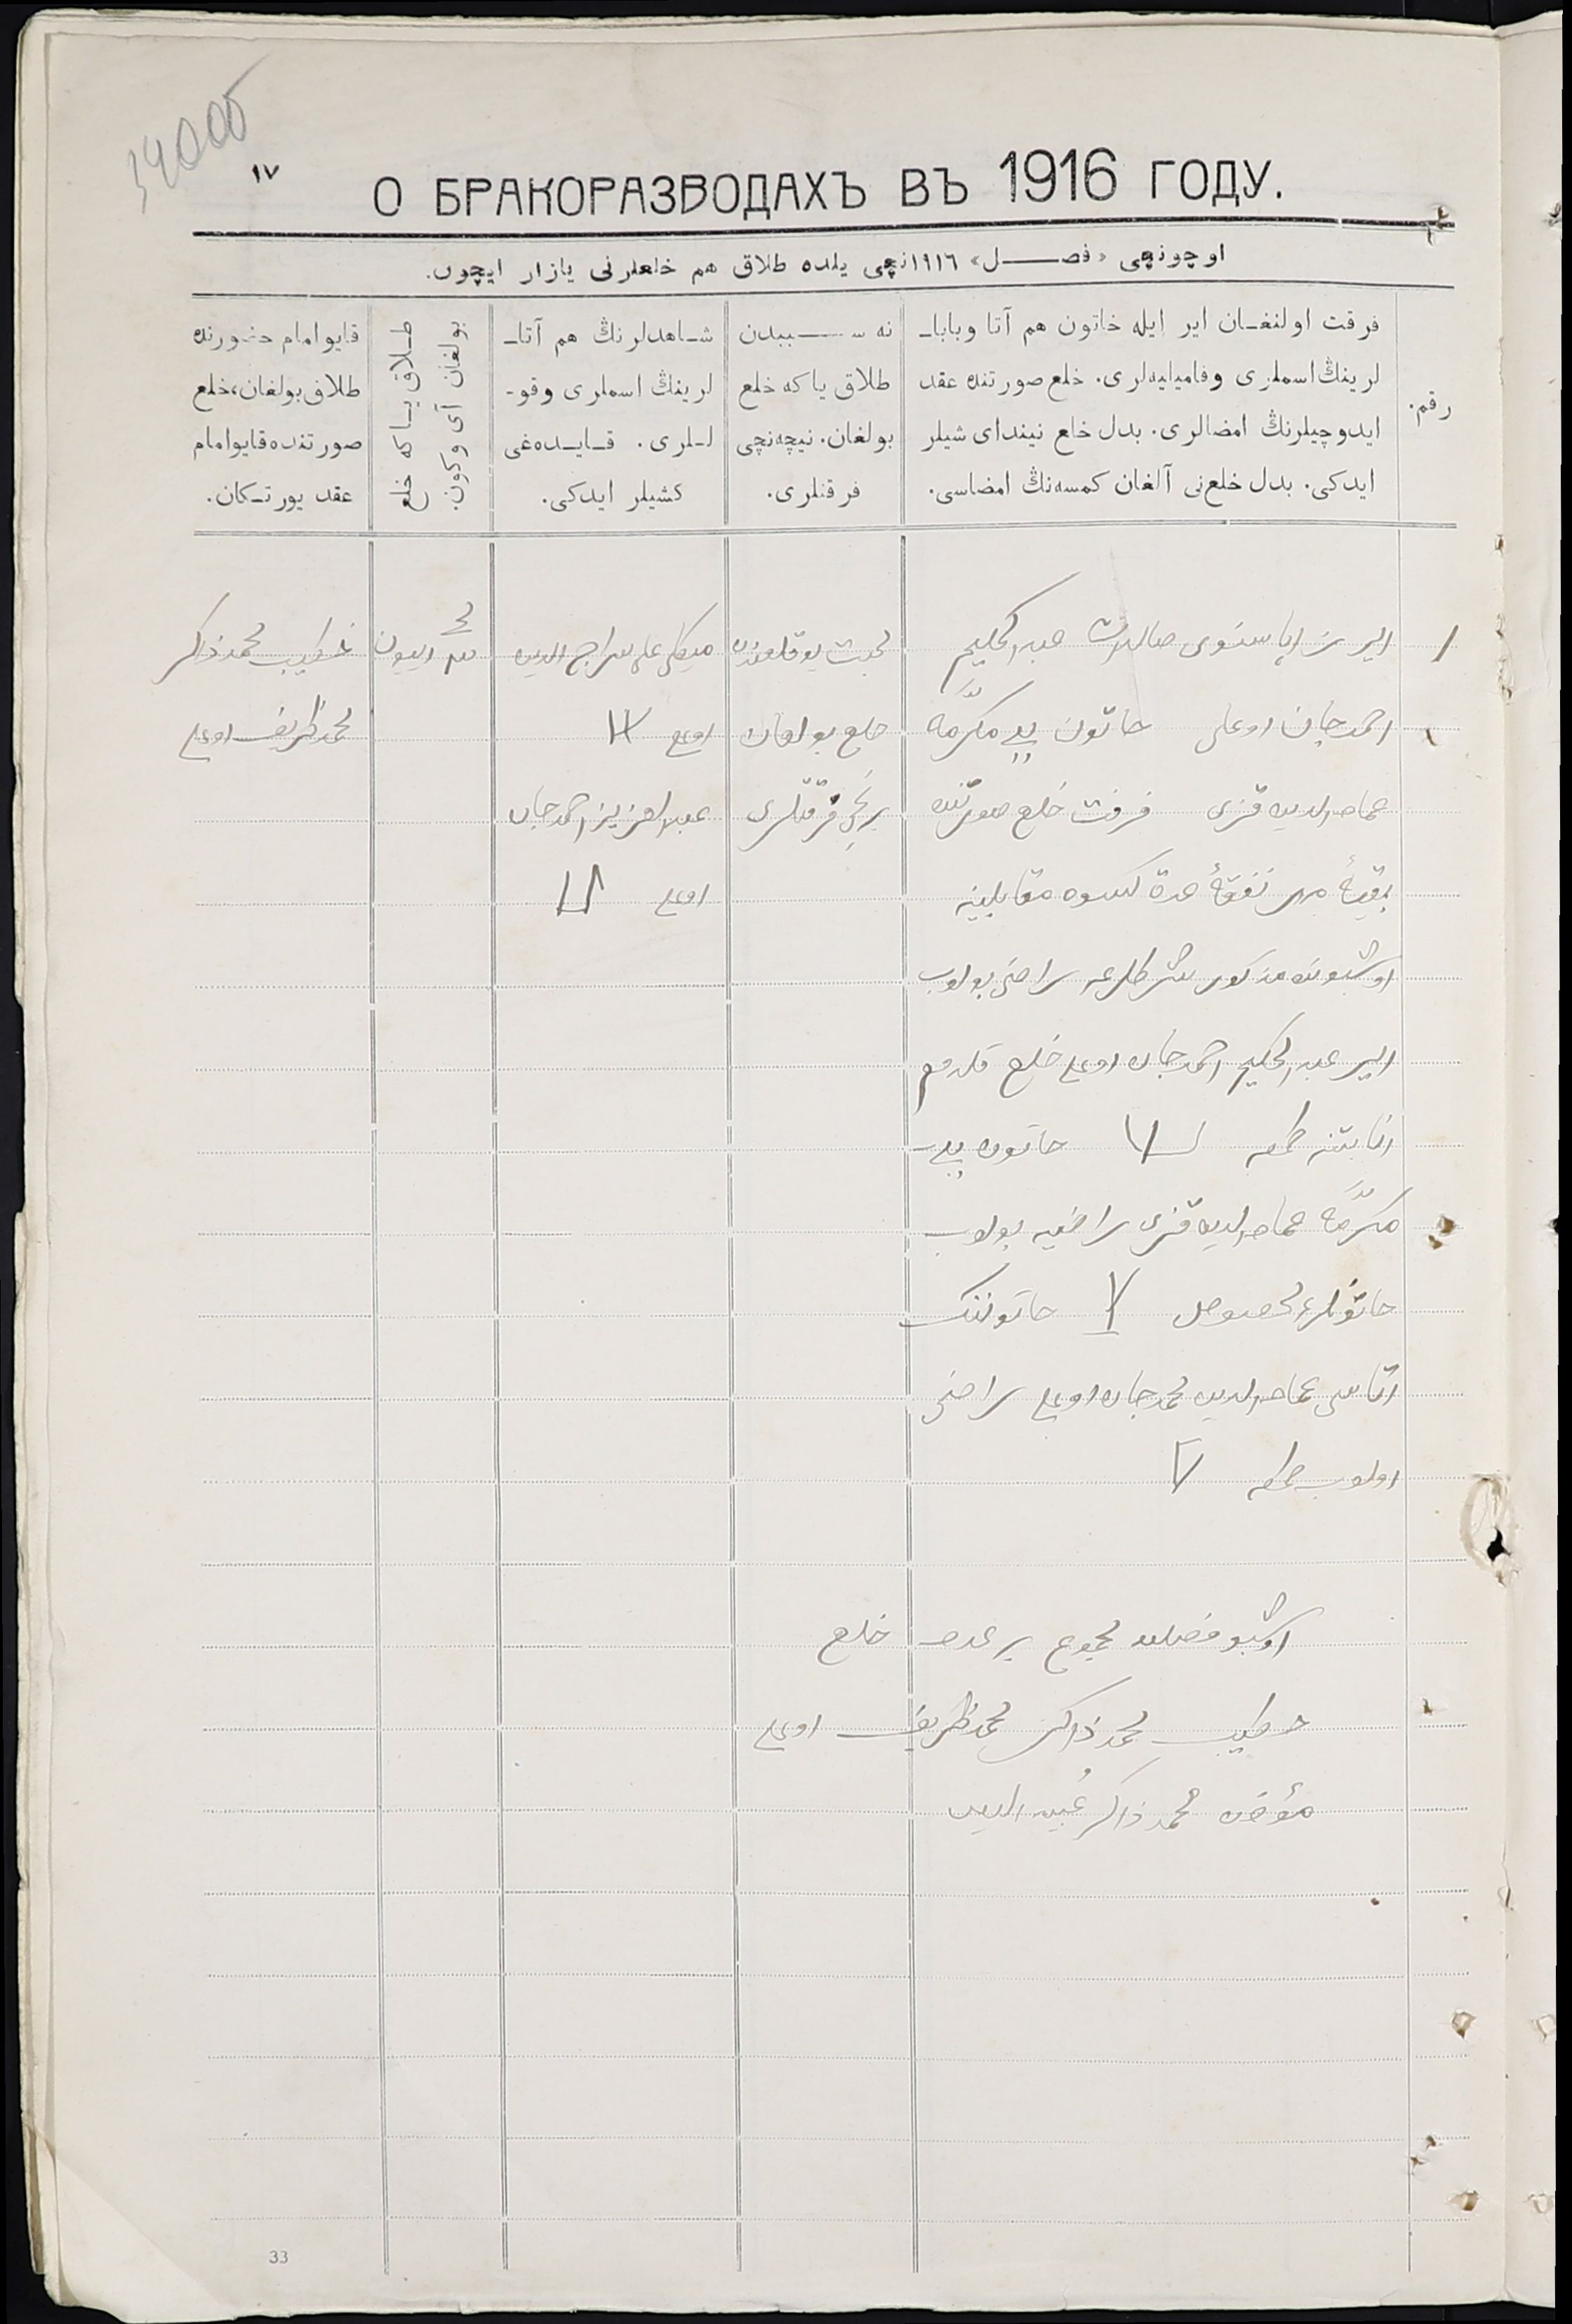 ١٧
О БРАКОРАЗВОДАХЪ ВЪ 1916 ГОДУ.
اوچونچی «فصـــل» ١٩١٦نچی یلده طلاق هم خلعلرنی یازار ایچون.
رقم.
فرقت اولنغـان ایر ایله خاتون هم آتا وباباـ
لرینڭ اسملری وفامیلیه‌لری. خلع صورتنده عقد
ایدوچیلرنڭ امضالری. بدل خلع نیندای شیلر
ایدکی. بدل خلع‌نی آلغان کمسه‌نڭ امضاسی.
نه ســـببدن
طلاق یا که خلع
بولغان. نیچه‌نچی
فرقتلری.
شـاهدلرنڭ هم آتاـ
لرینڭ اسملری وقوـ
لـلری. قـایـده‌غی
کشیلر ایدکی.
طـلاق یـا که خلع
بولغان آی وکون.
قایو امام حضورنده
طلاق بولغان، خلع
صورتنده قایو امام
عقد یورتـکان.
١
ایر عبد الحکیم
احمدجان اوغلی خاتون بی بی مکرّمه
عماد الدین قزی فرقت خلع صورتنده
بقیهٔ مهر نفقهٔ عدة کسوه مقابلینه
اوشبونده مذکور شرطلرغه راضی بولوب
ایر عبد الحکیم احمدجان اوغلی خلع
طمغه خاتون بی بی
مکرّمه عماد الدین قزی راضیه بولوب
خاتوننڭ
اتاسی عماد الدین محمدجان اوغلی راضی
اولوب طمغه
محبت یوقلغندن
خلع بولغان
برنچی فرقتلری
سراج الدین
اوغلی
عبد العزیز احمدجان
اوغلی
خطیب محمد ذاکر
محمد ظریف اوغلی
اوشبو فصلده مجموع بر عدد خلع
خطیب محمد ذاکر محمد ظریف اوغلی
مؤذن محمد ذاکر
33